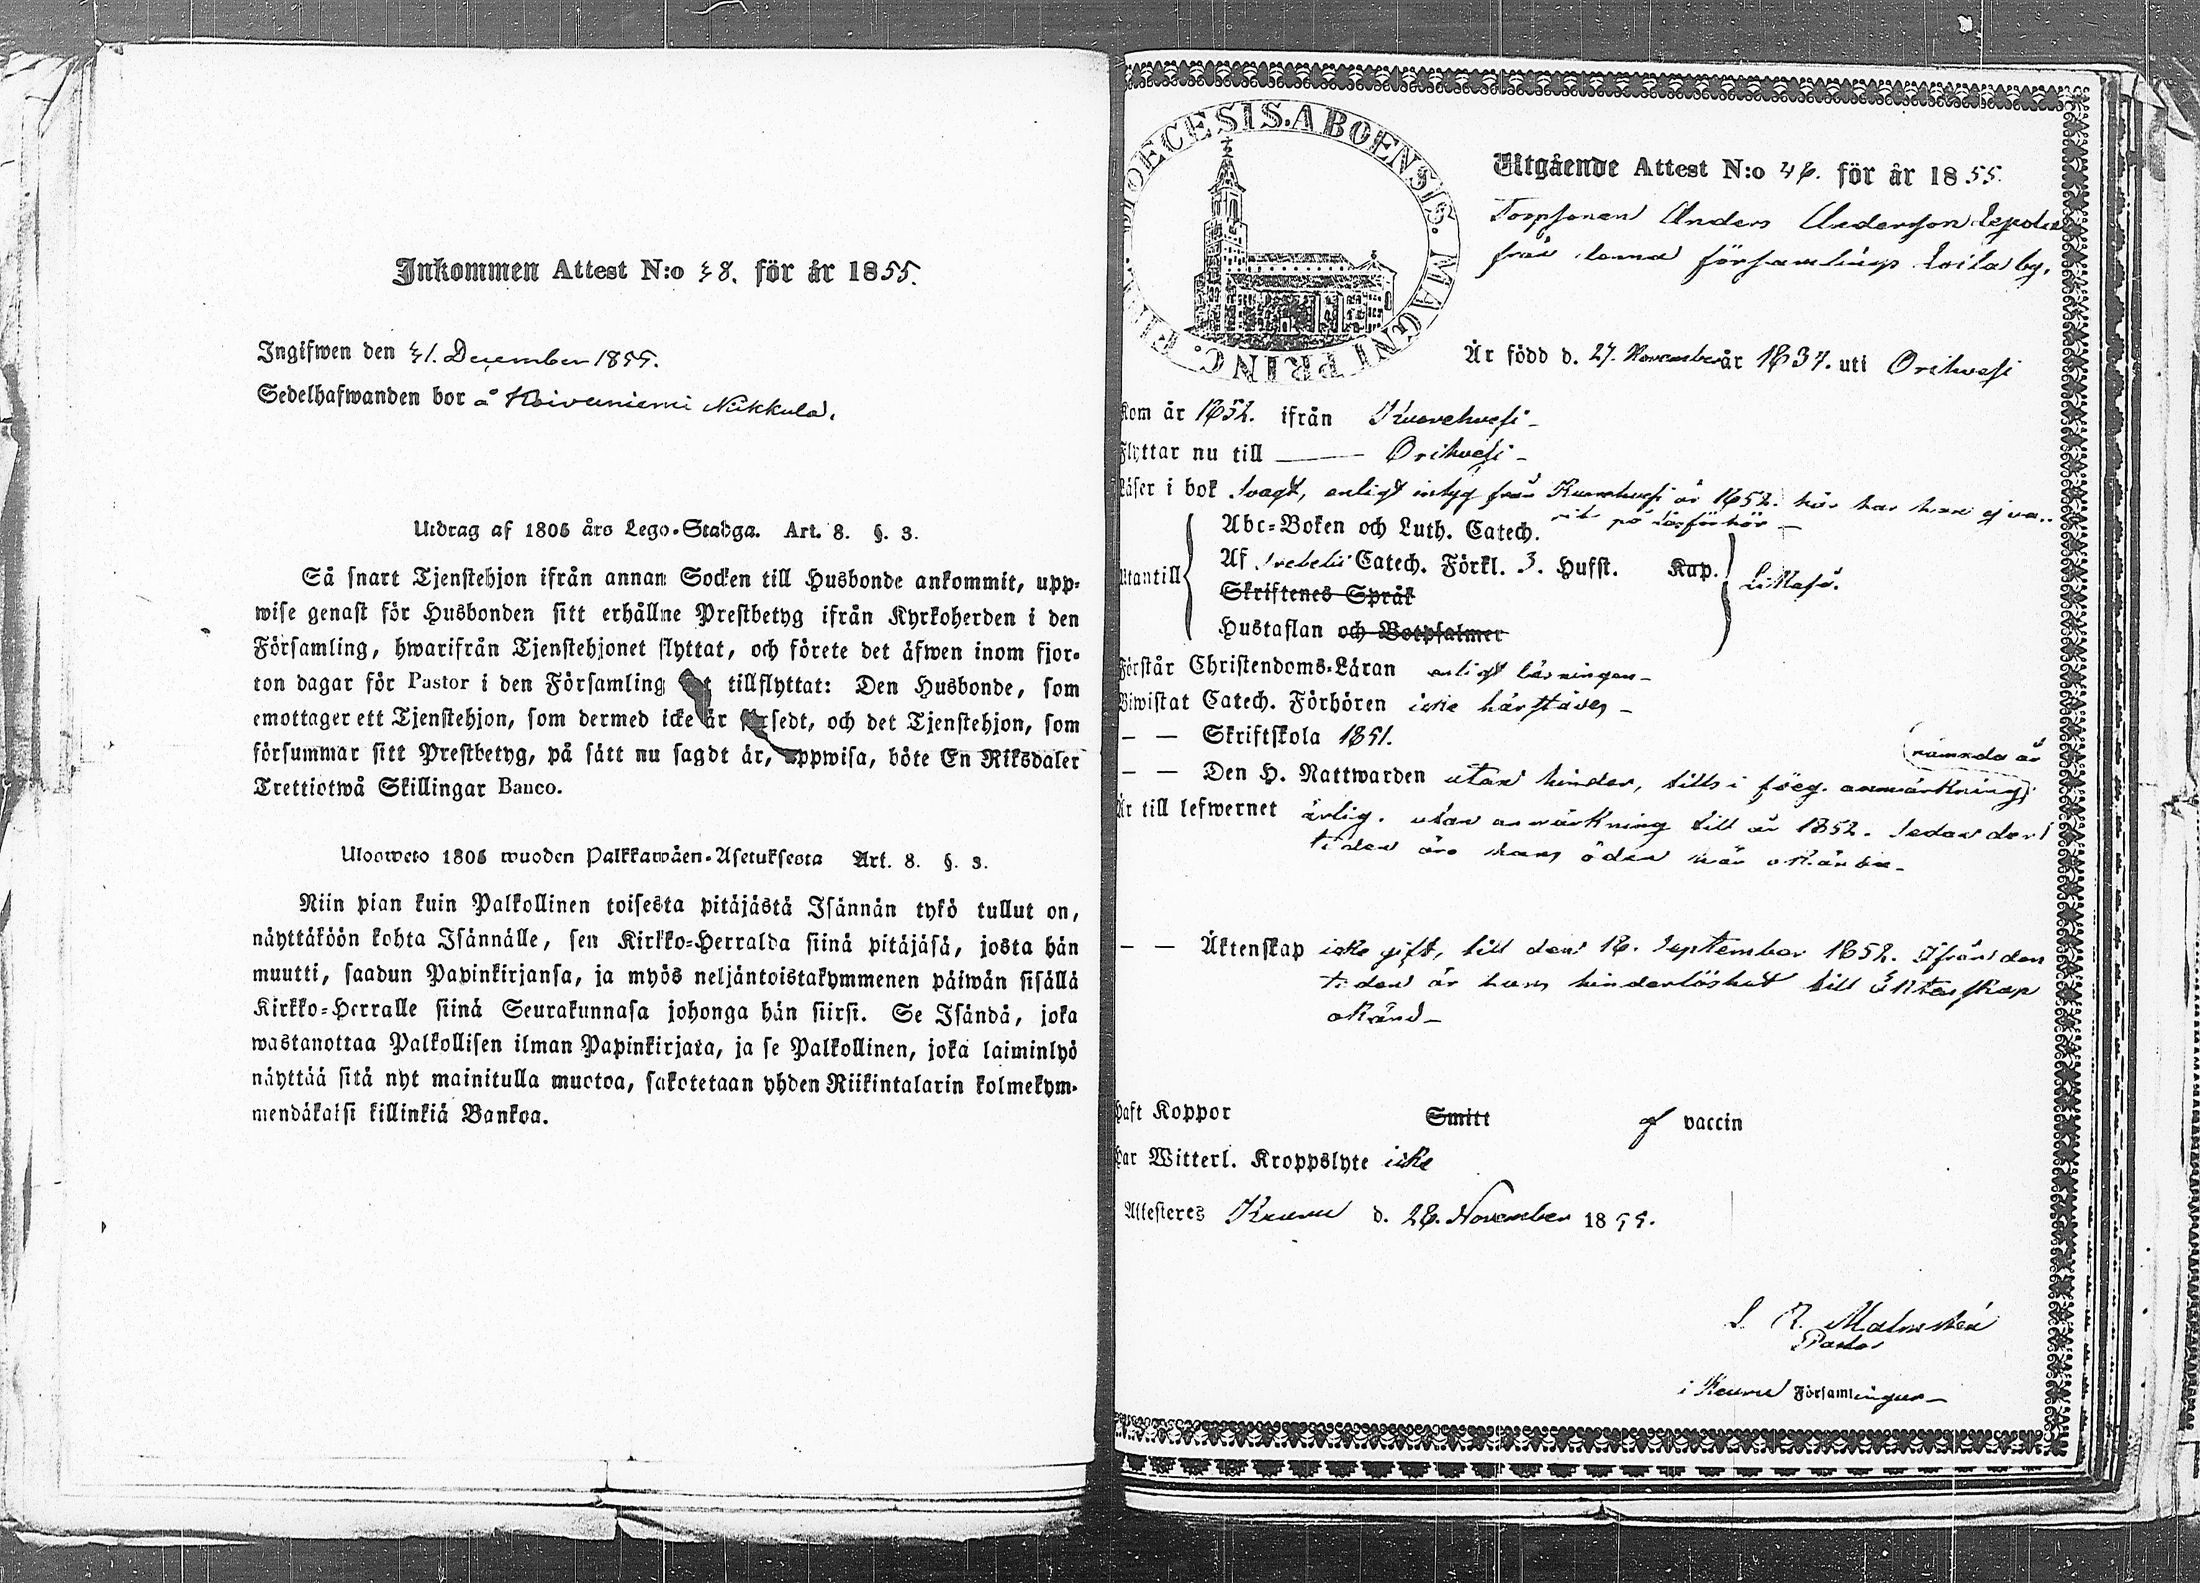 Inkommen Attest N:o 38. för år 1855.
Ingifwen den 31. December 1855.
Sedelhafwanden bor å Koivuniemi Nikkula.
Utdrag af 1805 års Lego-Stadga. Art. 8. §. 3.
Så snart Tjenstehjon ifrån annan Socken till Husbonde ankommit, upp-
wise genast för Husbonden sitt erhållne Prestbetyg ifrån Kyrkoherden i den
Församling, hwarifrån Tjenstehjonet flyttat, och förete det äfwen inom fjor-
ton dagar för Pastor i den Församling tillflyttat: Den Husbonde, som
emottager ett Tjenstehjon, som dermed icke är försedt, och det Tjenstehjon, som
försummar sitt Prestbetyg, på sätt nu sagdt är, uppwisa, böte En Riksdaler
Trettiotwå Skillingar Banco.
Ulosweto 1805 wuoden Palkkawäen-Asetuksesta Art. 8. §. 3.
Niin pian kuin Palkollinen toisesta pitäjästä Isännän tykö tullut on,
näyttäköön kohta Isännälle, sen Kirkko-Herralda siinä pitäjäsä, josta hän
muutti, saadun Papinkirjansa, ja myös neljäntoistakymmenen päiwän sisällä
Kirkko-Herralle siinä Seurakunnasa johonga hän siirsi. Se Isändä, joka
wastanottaa Palkollisen ilman Papinkirjata, ja se Palkollinen, joka laiminlyö
näyttää sitä nyt mainitulla muotoa, sakotetaan yhden Riikintalarin kolmekym-
mendäkaksi killinkiä Bankoa.
DIOECESIS. ABOENSIS. MAGNI PRINC.
Utgående Attest N:o 46. för år 1855.
Torpsonen Anders Andersson Lepola
från denna församlings Loila by.
Är född d. 27. November år 1837. uti Orihvesi
Kom år 1852. ifrån Kuorehvesi -
Flyttar nu till ——— Orihvesi -
Läser i bok svagt, enligt intyg från Kuorehvesi år 1852. här har han ej va..
rit på läsförhör -
Utantill
Abc-Boken och Luth. Catech.
Af Svebelii Catech. Förkl. 3. Hufst. Kap.
Skriftenes Språk
Hustaflan och Botpsalmer
Förstår Christendoms-Läran enligt läsningen -
Biwistat Catech. Förhören icke härstädes -
— — Skriftskola 1851.
— — Den H. Nattwarden utan hinder, tills i följ. anmärkning
nämnda år
Är till lefwernet ärlig. utan anmärkning till år 1852. Sedan den
tiden äro hans öden här okända -
— — Äktenskap icke gift, till den 16. September 1852. Ifrån den
tiden är hans hinderlöshet till äktenskap
okänd -
Haft Koppor Smitt af vaccin
Har Witterl. Kroppslyte icke
Attesteres Keuru d. 26. November 1855.
Malmstén
Pastor
i Keuru Församlingen -